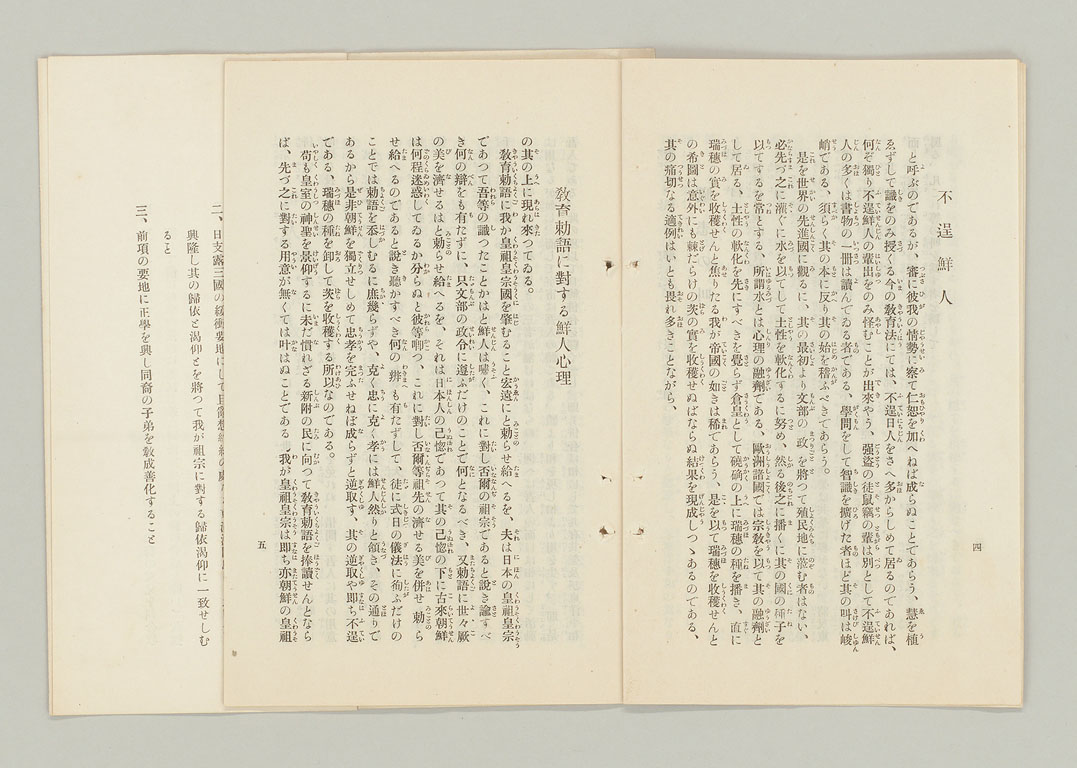 四
不逞鮮人
と呼ぶのであるが、審に彼我の情勢に察て仁恕を加へねば成らぬことであらう、慧を植
ゑずして識をのみ授くる今の敎育法にては、不逞日人をさへ多からしめて居るのであれば、
何ぞ獨り不逞鮮人の輩出をのみ怪むことが出來やう、强盜の徒鼠竊の輩は別として不逞鮮
人の多くは書物の一冊は讀んでゐる者である、學問をして智識を擴げた者ほど其の叫は峻
峭である、須らく其の本に反り其の始を稽ふべきであらう。
是を世界の先進國に觀るに、其の最初より文部の政を將つて殖民地に蒞む者はない、
必先づ之に灌ぐに水を以てして土性を軟化するに努め、然る後之に播くに其の國の種子を
以てするを常とする、所謂水とは心理の融劑である、歐洲諸國では宗敎を以て其の融劑と
して居る、土性の軟化を先にすべきを覺らず倉皇として磽确の上に瑞穗の種を播き、直に
瑞穗の實を收穫せんと焦りたる我が帝國の如きは稀であらう、是を以て瑞穗を收穫せんと
の希圖は意外にも棘だらけの茨の實を收穫せねばならぬ結果を現成しつゝあるのである、
其の痛切なる適例はいとも畏れ多きことながら、
敎育勅語に對する鮮人心理
の其の上に現れ來つてゐる。
敎育勅語に我か皇祖皇宗國を肇むること宏遠にと勅らせ給へるを、夫は日本の皇祖皇宗
であつて吾等の識つたことかはと鮮人は嘯く、これに對し否爾の祖宗であると說き諭すべ
き何の辯をも有たずに、只文部の政令に遵ふだけのことで何となるべき、又勅語に世々厥
の美を濟せるはと勅らせ給へるを、それは日本人の己惚であつて其の己惚の下に古來朝鮮
は何程迷惑してゐるか分らぬと彼等唧つ、これに對し否爾等祖先の濟せる美を併せ勅ら
せ給へるのであると說き聽かすべき何の辨も有たずして、徒に式日の儀法に徇ふだけの
ことでは勅語を忝しむるに庶幾らずや、克く忠に克く孝には鮮人然りと頷き、その通りで
あるから是非朝鮮を獨立せしめて忠孝を完ふせねば成らずと逆取す、其の逆取や即ち不逞
である、瑞穗の種を卸して茨を收穫する所以なのである。
苟も皇室の神聖を景仰するに未だ慣れざる新附の民に向つて敎育勅語を捧讀せんとなら
ば、先づ之に對する用意が無くては叶はぬことである、我が皇祖皇宗は即ち亦朝鮮の皇祖
五
二、日支露三國の緩衝要地にして且
興隆し其の歸依と渴仰とを將つて我が祖宗に對する歸依渴仰に一致せしむ
ること
三、前項の要地に正學を興し同裔の子弟を敎成善化すること